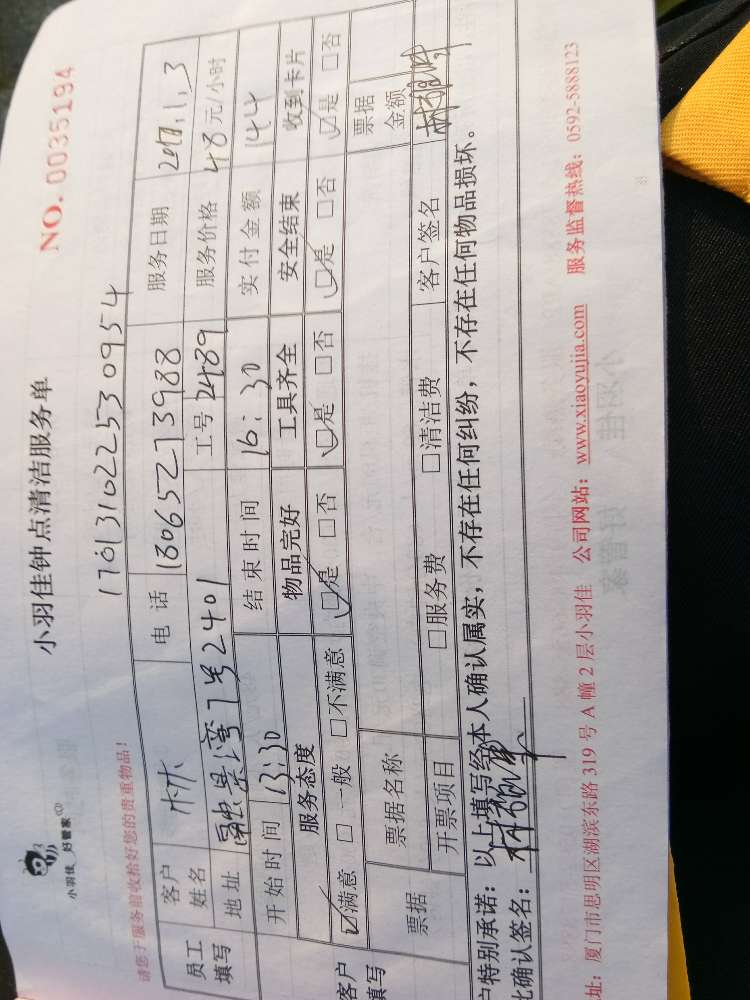 小羽佳 好管家
小羽佳钟点清洁服务单
NO. 0035194
请您于服务前收检好您的贵重物品!
17013102253 0954
员工填写 客户姓名 林 电话 18065213988 服务日期 2017.1.3
地址 融景湾7号2401 工号 2489 服务价格 48元/小时
开始时间 13:30 结束时间 16:30 实付金额 144
客户填写 服务态度 物品完好 工具齐全 安全结束 收到卡片
☑满意 □一般 □不满意 ☑是 □否 ☑是 □否 ☑是 □否 ☑是 □否
票据 票据名称 票据金额
开票项目 □服务费 □清洁费 客户签名
户特别承诺:以上填写经本人确认属实,不存在任何纠纷,不存在任何物品损坏。
此确认签名:
址:厦门市思明区湖滨东路 319 号 A 幢 2 层小羽佳 公司网站:www.xiaoyujia.com 服务监督热线:0592-5888123